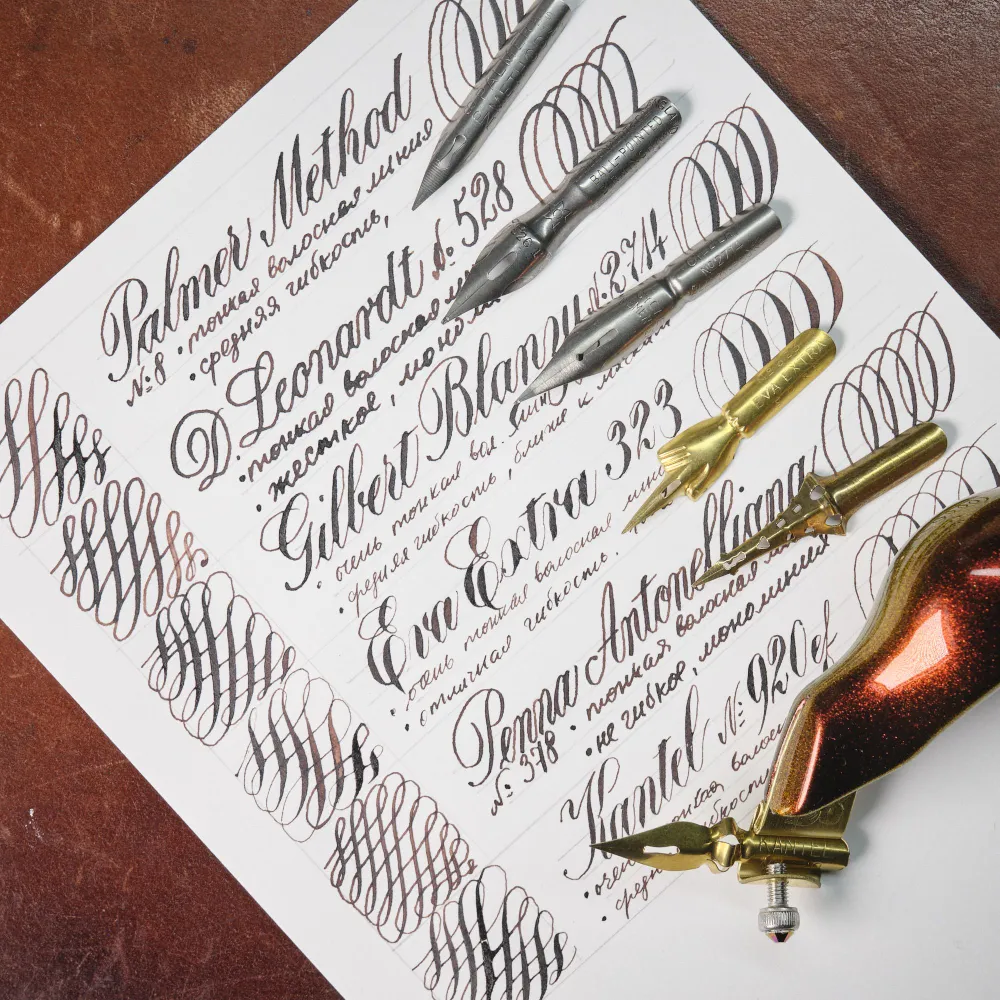 Palmer Method
№8 • тонкая волосная линия
• средняя гибкость,
D. Leonardt №528
• тонкая волосная
жесткое, моно
Gilbert Blanzy №2774
• очень тонкая вол. лин
• средняя гибкость, ближе к мягким
Eva Extra 323
• очень тонкая волосная лин
• отличная гибкость.
Penna Antonelliana
№378 • тонкая волосная линия
• не гибкое, монолиния
Kantel №920ef
• очень тонкая волосн
• средн гибкость
BALL-POINTED
KANTEL